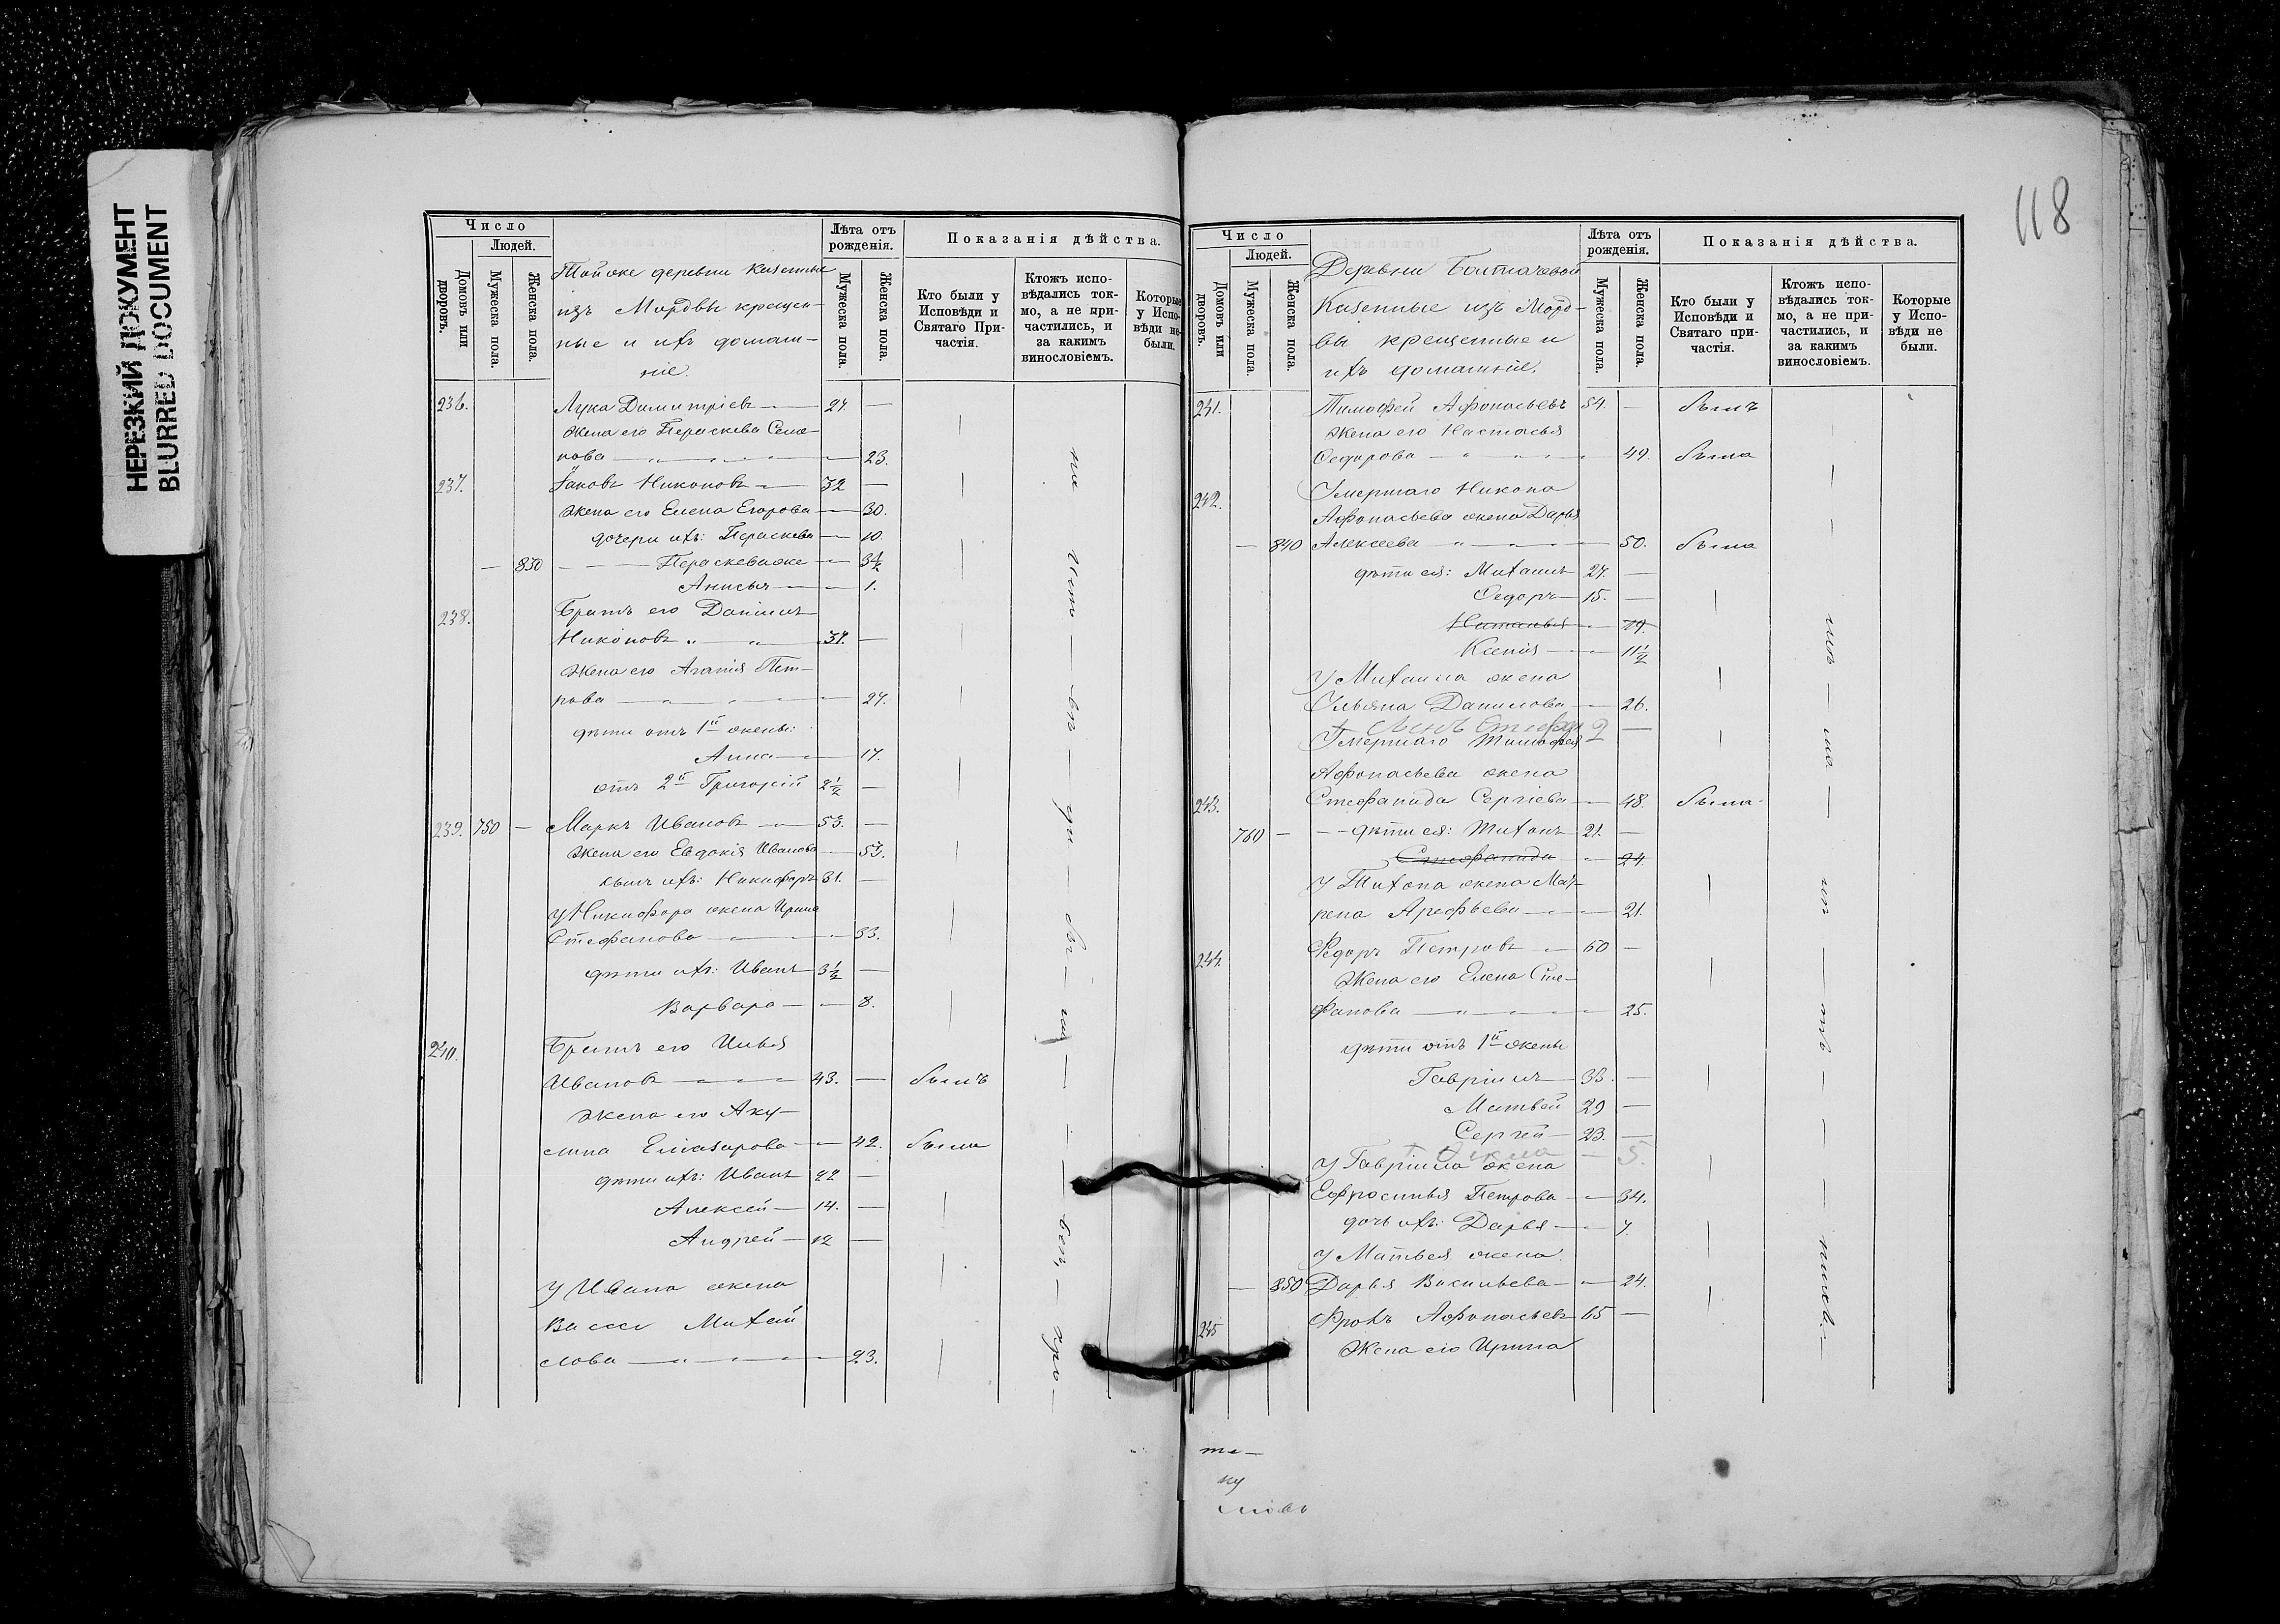 НЕРЕЗКИЙ ДОКУМЕНТ
BLURRED DOCUMENT
118
Число
Людей.
Лѣта отъ рожденія.
Показанія дѣйства.
Домовъ или дворовъ.
Мужеска пола.
Женска пола.
Мужеска пола.
Женска пола.
Кто были у Исповѣди и Святаго При-частія.
Ктожъ испо-вѣдались ток-мо, а не при-частились, и за какимъ винословіемъ.
Которые у Испо-вѣди не были.
Тойже деревни Казенные
изъ Мордвы крещен-
ные и ихъ домаш-
ніе.
236. Лука Димитріевъ 27. —
жена его Параскева Семе-
нова 23.
237. Іаковъ Никоновъ 32 —
жена его Елена Егорова 30.
дочери ихъ: Параскева 10.
— 830 Параскева же 3½
Анисья 1.
238. Братъ его Даніилъ
Никоновъ 37. —
жена его Агапія Пет-
рова 27.
дѣти отъ 1й жены:
Анна 17.
отъ 2й Григорій 2½ —
239. 750 — Маркъ Ивановъ 53. —
жена его Евдокія Иванова 53.
сынъ ихъ: Никифоръ 31. —
У Никифора жена Ирина
Стефанова 33.
дѣти ихъ: Иванъ 3½ —
Варвара 8.
240. Братъ его Илья
Ивановъ 43. — былъ
жена его Аку-
лина Елиазарова 42. была
дѣти ихъ: Иванъ 22 —
Алексей 14. —
Андрей 12 —
У Ивана жена
Васса Михай
лова 23.
Число
Людей.
Лѣта отъ рожденія.
Показанія дѣйства.
Домовъ или дворовъ.
Мужеска пола.
Женска пола.
Мужеска пола.
Женска пола.
Кто были у Исповѣди и Святаго при-частія.
Ктожъ испо-вѣдались ток-мо, а не при-частились, и за какимъ винословіемъ.
Которые у Испо-вѣди не были.
Деревни
Казенные изъ Морд-
вы крещенные и
ихъ домашніе.
241. Тимофей Афонасьевъ 54. — былъ
жена его Настасья
Ѳедорова 49. была
242. Умершаго Никона
Афонасьева жена Дарья
— 840 Алексеева 50. была
дѣти ея: Михаилъ 27. —
Ѳедоръ 15. —
Наталья 19.
Ксенія 11½
У Михаила жена
Ульяна Данилова 26.
2 —
Умершаго Тимофея
Афонасьева жена
243. Стефанида Сергіева 48. была
760 — дѣти ея: Тихонъ 21. —
Стефанида 24
У Тихона жена Мат-
рена Арефьева 21.
244. Ѳедоръ Петровъ 60 —
Жена его Елена Сте-
фанова 25.
дѣти отъ 1й жены
Гавріилъ 33. —
Матвей 29 —
Сергей 23. —
5.
У Гавріила жена
Ефросинья Петрова 34.
дочь ихъ: Дарья 7.
У Матвея жена
— 850 Дарья Васильева 24.
245 Фролъ Афонасьевъ 65 —
Жена его Ирина